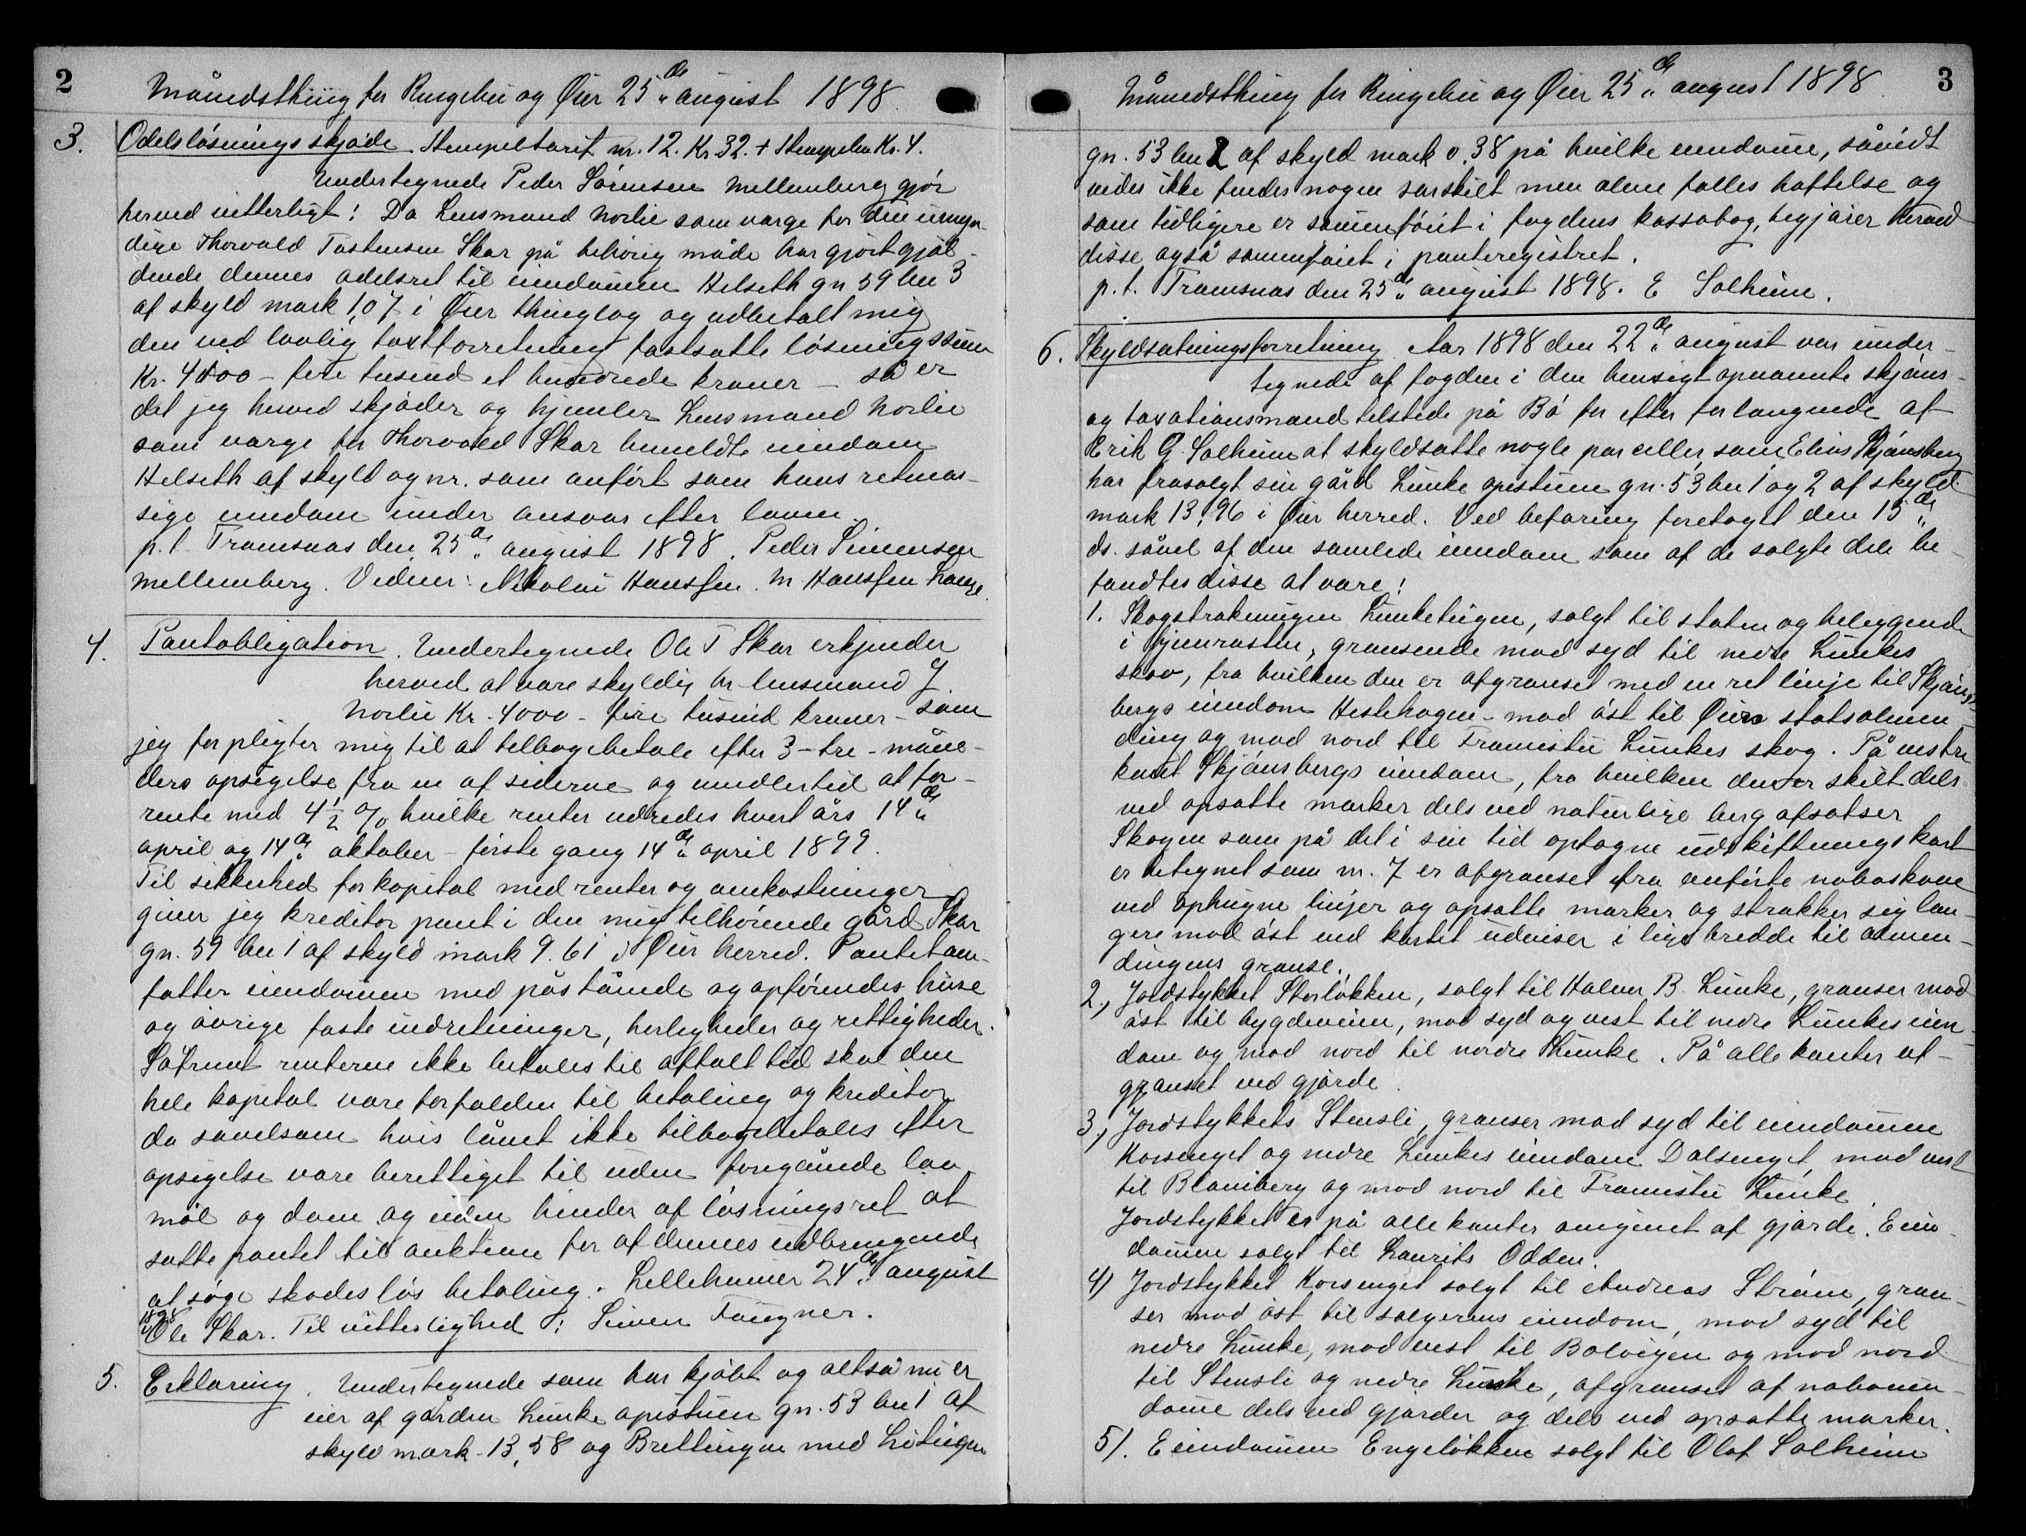 2
Månedsthing for Ringebu og Øier 25de august 1898.
3. Odelsløsningsskjøde. Stempeltarif nr. 12. Kr 32. + Stempelm Kr. 4.
Undertegnede Peder Sørensen Mellemberg gjør
herved vitterligt: Da Lensmand Norlie som værge for den umyn-
dige Thorvald Tostensen Skar på behørig måde har gjort gjæl-
dende dennes odelsret til eiendommen Helseth gn 59 bn 3
af skyld mark 1,07 i Øier thinglag og udbetalt mig
den ved lovlig taxtforretning fastsatte løsningssum
Kr. 4100 - fire tusend et hundrede kroner - så er
det jeg herved skjøder og hjemler Lensmand Norlie
som værge for Thorvald Skar bemeldte eiendom
Helseth af skyld og nr. som anført som hans retmæs-
sige eiendom under ansvar efter loven.
p.t. Tramsnæs den 25de august 1898. Peder Simensen
Mellemberg. Vidner: Nikolai Hanssen. M Hanssen Lange.
4. Pantobligation. Undertegnede Ole T Skar erkjender
herved at være skyldig hr lensmand J.
Norlie Kr. 4000 - fire tusind kroner - som
jeg forpligter mig til at tilbagebetale efter 3 - tre - måne-
ders opsigelse fra en af siderne og imidlertid at for-
rente med 4 1/2 % hvilke renter udredes hvert års 14de
april og 14de oktober - første gang 14de april 1899.
Til sikkerhed for kapital med renter og omkostninger
giver jeg kreditor pant i den mig tilhørende gård Skar
gn. 59 bn 1 af skyld mark 9.61 i Øier herred. Pantet om-
fatter eiendommen med påstående og opførendes huse
og øvrige faste indretninger, herligheder og rettigheder.
Såfremt renterne ikke betales til aftalt tid skal den
hele kapital være forfalden til betaling og kreditor
da såvelsom hvis lånet ikke tilbagebetales efter
opsigelse være berettiget til uden foregående lov-
mål og dom og uden hinder af løsningsret at
sætte pantet til auktion for af dennes udbringende
at søge skadesløs betaling. Lillehamer 24de august
1898 Ole Skar. Til vitterlighed: Simen Fougner.
5. Erklæring. Undertegnede som har kjøbt og altså nu er
eier af gården Lunke opistuen gn. 53 bn 1 af
skyld mark 13,58 og Brettingen med Liteigen
3
Månedsthing for Ringebu og Øier 25de august 1898.
gn. 53 bn 2 af skyld mark 0.38 på hvilke eiendomme, såvidt
vides ikke findes nogen særskilt men alene fælles hæftelse og
som tidligere er sammenføiet i fogdens kassabog, begjærer herved
disse også sammenføiet i panteregistret.
p.t. Tramsnæs den 25de august 1898. E Solheim.
6. Skyldsætningsforretning. Aar 1898 den 22de august var under-
tegnede af fogden i den hensigt opnævnte skjøns-
og taxationsmænd tilstede på Bø for efter forlangende af
Erik G. Solheim at skyldsætte nogle parceller, som Elias Skjønsberg
har frasolgt sin gård Lunke opistuen gn. 53 bn 1 og 2 af skyld
mark 13,96 i Øier herred. Ved befaring foretaget den 15de
ds. såvel af den samlede eiendom som af de solgte dele be-
fandtes disse at være:
1. Skogstrækningen Lunketeigen, solgt til staten og beliggende
i Fjeurasten, grænsende mod syd til nedre Lunkes
skov, fra hvilken den er afgrænset med en ret linje til Skjøns-
bergs eiendom Hestehagen - mod øst til Øiers statsalmen-
ding og mod nord til Framistu Lunkes skog. På vestre
kant Skjønsbergs eiendom, fra hvilken den er skilt dels
ved opsatte mærker dels ved naturlige bergafsatser
Skogen som på det i sin tid optagne udskiftningskart
er betegnet som nr. 7 er afgrænset fra anførte naboskove
ved ophugne linjer og opsatte mærker og strækker sig læn-
gere mod øst end kartet udviser i lige bredde til almen-
dingens grænse.
2, Jordstykket Storløkken, solgt til Halvor B. Lunke, grænser mod
øst til bygdeveien, mod syd og vest til nedre Lunkes eien-
dom og mod nord til nordre Lunke. På alle kanter af-
grænset ved gjærde.
3, Jordstykkets Stensli, grænser mod syd til eiendommen
Korsenget og nedre Lunkes eiendom Dalsenget, mod vest
til Blaaberg og mod nord til Framistu Lunke.
Jordstykket er på alle kanter omgivet af gjærde. Eien-
domme solgt til Laurits Odden.
4) Jordstykket Korsenget solgt til Andreas Strøm, græn-
ser mod øst til sælgerens eiendom, mod syd til
nedre Lunke, mod vest til Bolvigen og mod nord
til Stensli og nedre Lunke, afgrænset af naboeien-
domme dels ved gjærder og dels ved opsatte mærker.
5). Eiendommen Engeløkken solgt til Olaf Solheim